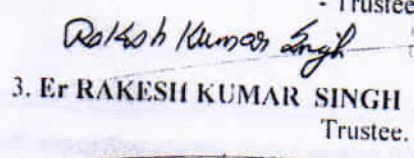 - Trustee
Rakesh Kumar Singh
3. Er RAKESH KUMAR SINGH
Trustee.